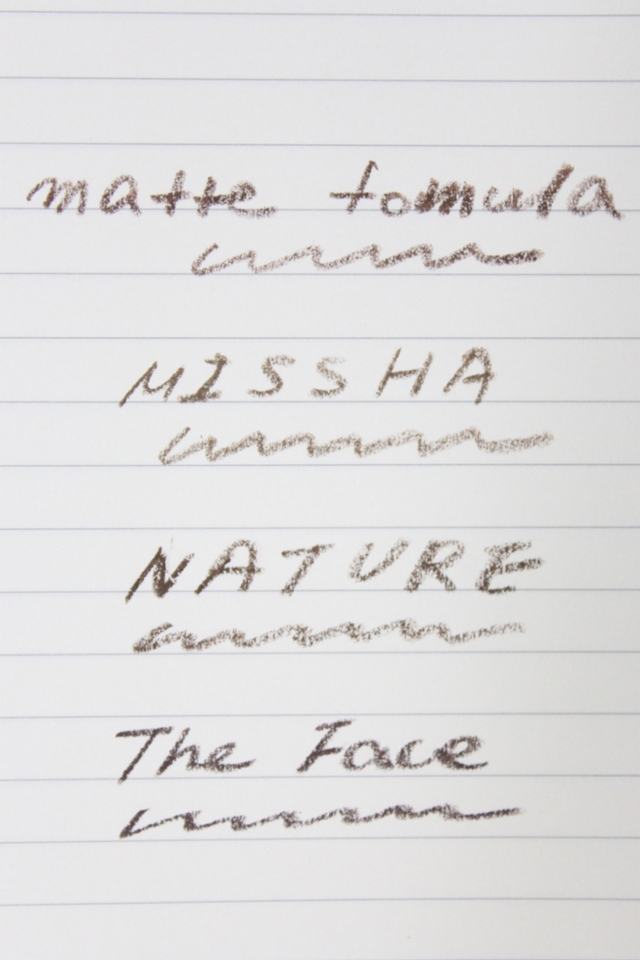 matte fomula
MISSHA
NATURE
The Face